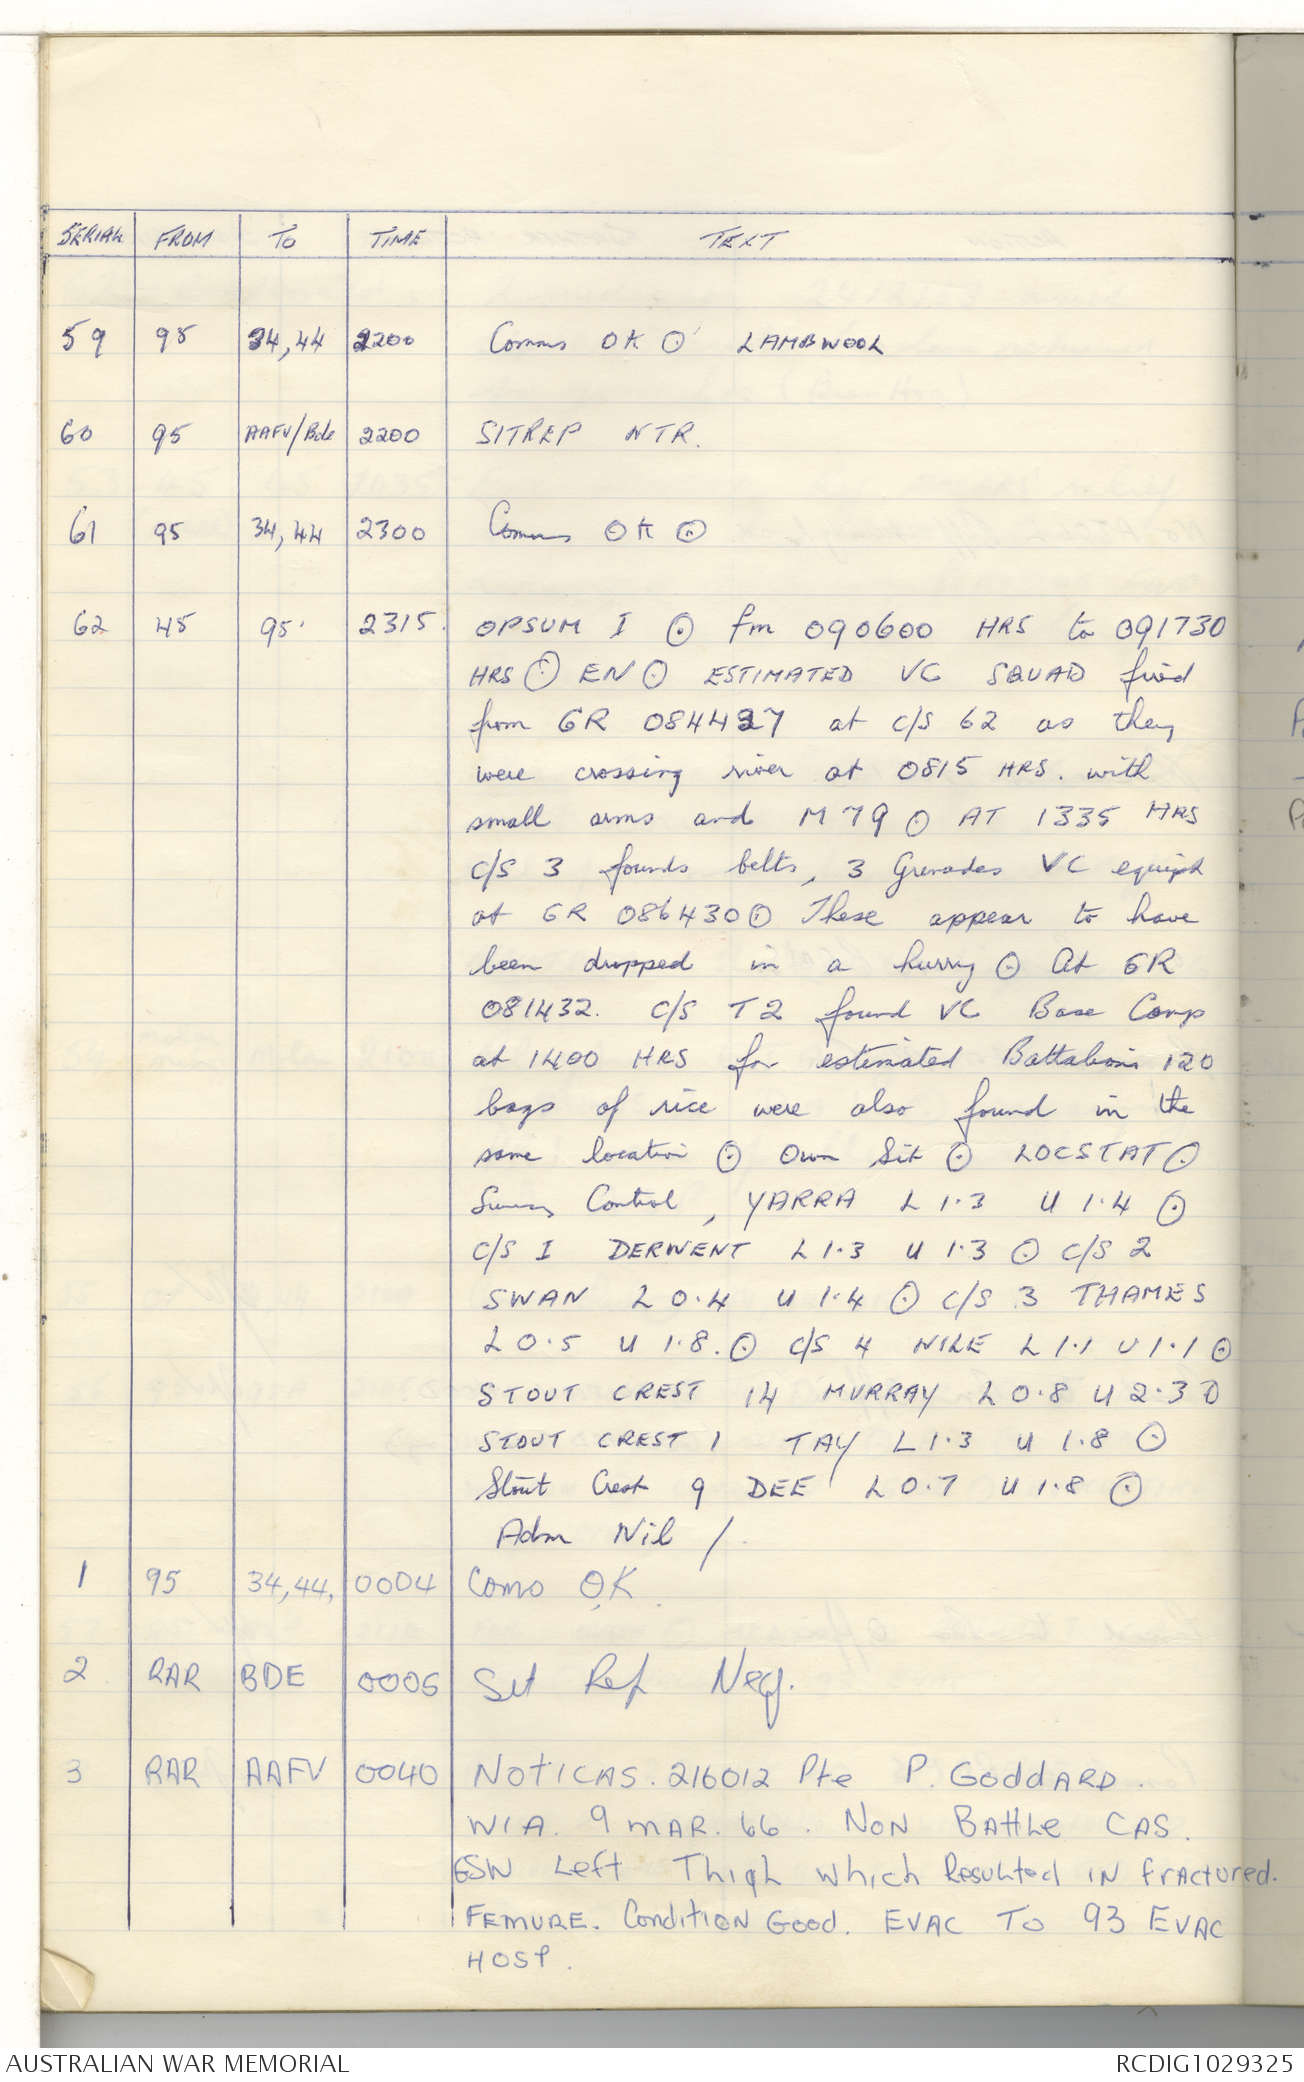 SERIAL FROM TO TIME TEXT
59 95 34,44 2200 Comms OK ⊙ LAMBWOOL
60 95 AAFV/Bde 2200 SITREP NTR.
61 95 34,44 2300 Comms OK ⊙
62 45 95 2315. OPSUM I ⊙ fm 090600 HRS to 091730
HRS ⊙ EN ⊙ ESTIMATED VC SQUAD fired
from GR 084427 at C/S 62 as they
were crossing river at 0815 HRS. with
small arms and M79 ⊙ AT 1335 HRS
C/S 3 founds belts, 3 Grenades VC equipt
at GR 086430 ⊙ These appear to have
been dropped in a hurry ⊙ At GR
081432. C/S T2 found VC Base Camp
at 1400 HRS for estimated Battalion 120
bags of rice were also found in the
same location ⊙ Own Sit ⊙ LOCSTAT ⊙
Control, YARRA L 1.3 U 1.4 ⊙
C/S I DERWENT L 1.3 U 1.3 ⊙ C/S 2
SWAN L 0.4 U 1.4 ⊙ C/S 3 THAMES
L 0.5 U 1.8. ⊙ C/S 4 NILE L 1.1 U 1.1 ⊙
STOUT CREST 14 MURRAY L 0.8 U 2.3 ⊙
STOUT CREST 1 TAY L 1.3 U 1.8 ⊙
Stout Crest 9 DEE L 0.7 U 1.8 ⊙
Adm Nil /.
1 95 34,44, 0004 Coms OK
2 RAR BDE 0005 Sit Rep Neg.
3 RAR AAFV 0040 NOTICAS. 216012 Pte P. GOddARD.
WIA. 9 MAR. 66. NON BAttLe CAS.
GSW Left Thigh which Resulted IN fractured.
FEMURE. Condition Good. EVAC TO 93 EVAC
HOSP.
AUSTRALIAN WAR MEMORIAL RCDIG1029325